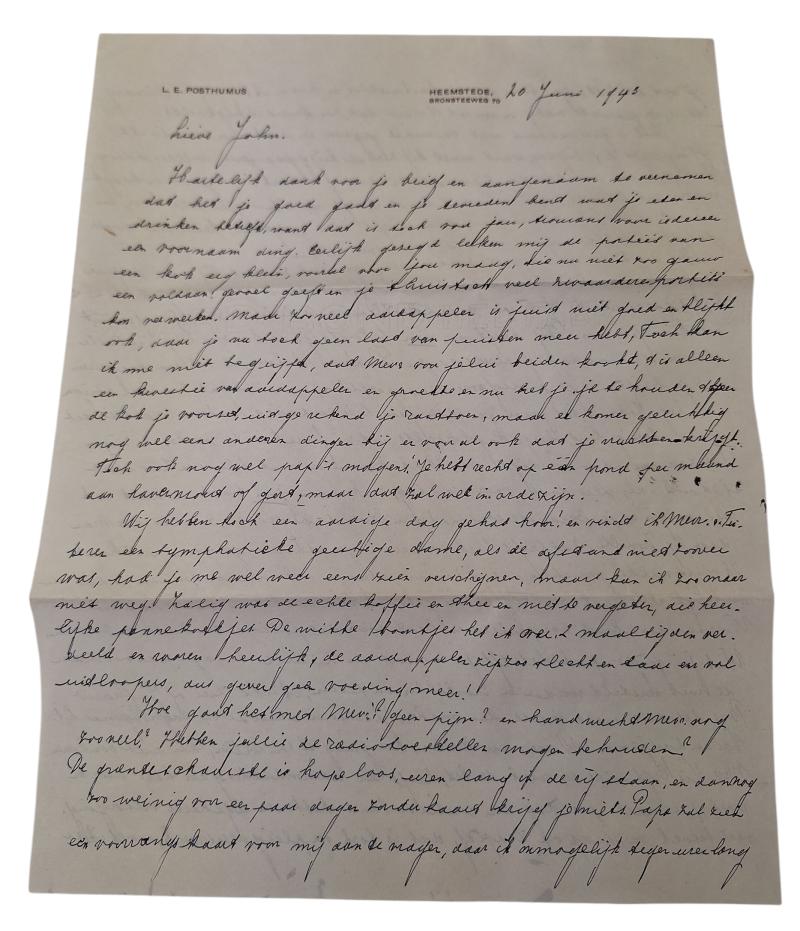 L. E. POSTHUMUS
HEEMSTEDE, 20 Juni 1943
BRONSTEEWEG 70
Lieve John.
Hartelijk dank voor je brief en aangenaam te vernemen
dat het je goed gaat en je tevreden bent wat je eten en
drinken betreft, want dat is toch voor jou, trouwens voor iedereen
een voornaam ding. Eerlijk gezegd leken mij de portie's van
een kok erg klein, vooral voor jou maag, die nu niet zoo gauw
een voldaan gevoel geeft en je thuis toch veel zwaardere portie's
kon verwerken. Maar zooveel aardappelen is juist niet goed en blijkt
ook, daar je nu toch geen last van puisten meer hebt, Toch kan
ik me niet begrijpen, dat Mevr. voor jelui beiden kookt, 't is alleen
een kwestie van aardappelen en groente en nu het je te houden
de kok je voorzet, uitgerekend je rantsoen, maar er komen gelukkig
nog wel eens anderen dingen bij en vooral ook dat je vruchten krijgt.
Toch ook nog wel pap 's morgens! Je hebt recht op één pond per maand
aan havermout of gort, maar dat zal wel in orde zijn.
Wij hebben toch een aardige dag gehad hoor! en vindt ik Mevr. v. Tui-
keren een symphatieke geestige dame, als de afstand niet zoover
was, had je me wel weer eens zien verschijnen, maar kan ik zoo maar
niet weg. Zalig was de echte koffie en thee en niet te vergeten, die heer-
lijke pannekoekjes De witte boontjes heb ik over 2 maaltijden ver-
deeld en waren heerlijk, de aardappelen zijn zoo slecht en taai en vol
uitloopers, dus geven geen voeding meer!
Hoe gaat het met Mevr? geen pijn? en handwerkt Mevr. nog
zooveel? Hebben jullie de radio-toestellen mogen behouden?
De groenteschaarste is hopeloos, uren lang in de rij staan, en dan nog
zoo weinig voor een paar dagen zonder kaart krijg je niets. Papa zal zien
een voorrangskaart voor mij aan te vragen, daar ik onmogelijk tegen urenlang